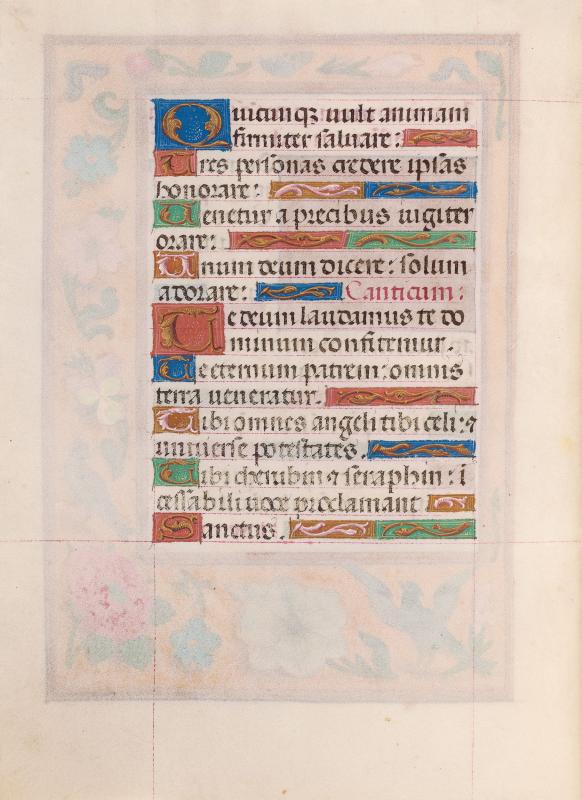 Quicunqꝫ vult animam
firmiter salvare:
Tres personas credere ipsas
honorare:
Venetur a precibus iugiter
orare:
Unum deum dicere: solum
adorare: Canticum:
Te deum laudamus te do
minum confitemur.
Te eternum patrem: omnis
terra veneratur.
Tibi omnes angeli tibi celi: ⁊
universe potestates.
Tibi cherubin ⁊ seraphin: ī
cessabili voce proclamant
Sanctus.